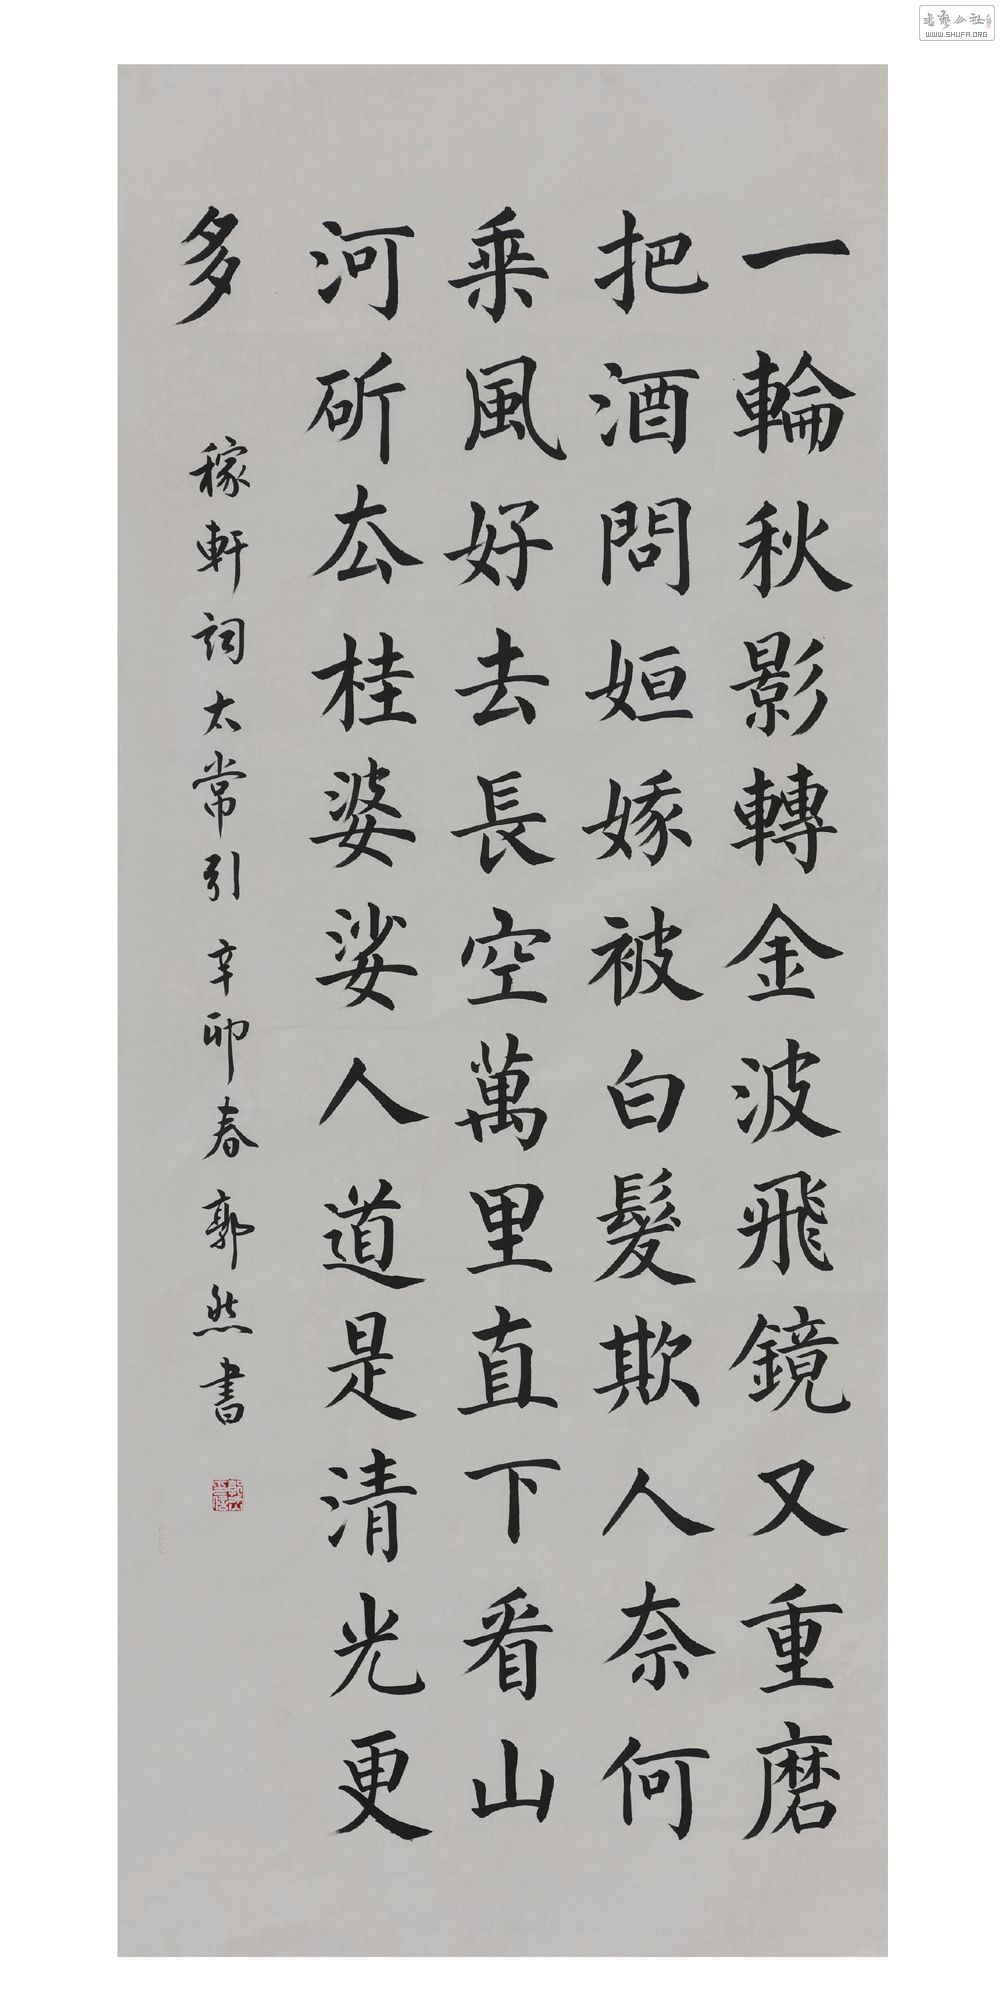 一輪秋影轉金波飛鏡又重磨
把酒問姮娥被白髮欺人奈何
乘風好去長空萬里直下看山
河斫厺桂婆娑人道是清光更
多
稼軒詞太常引 辛卯春郭然書
書藝公社
WWW.SHUFA.ORG